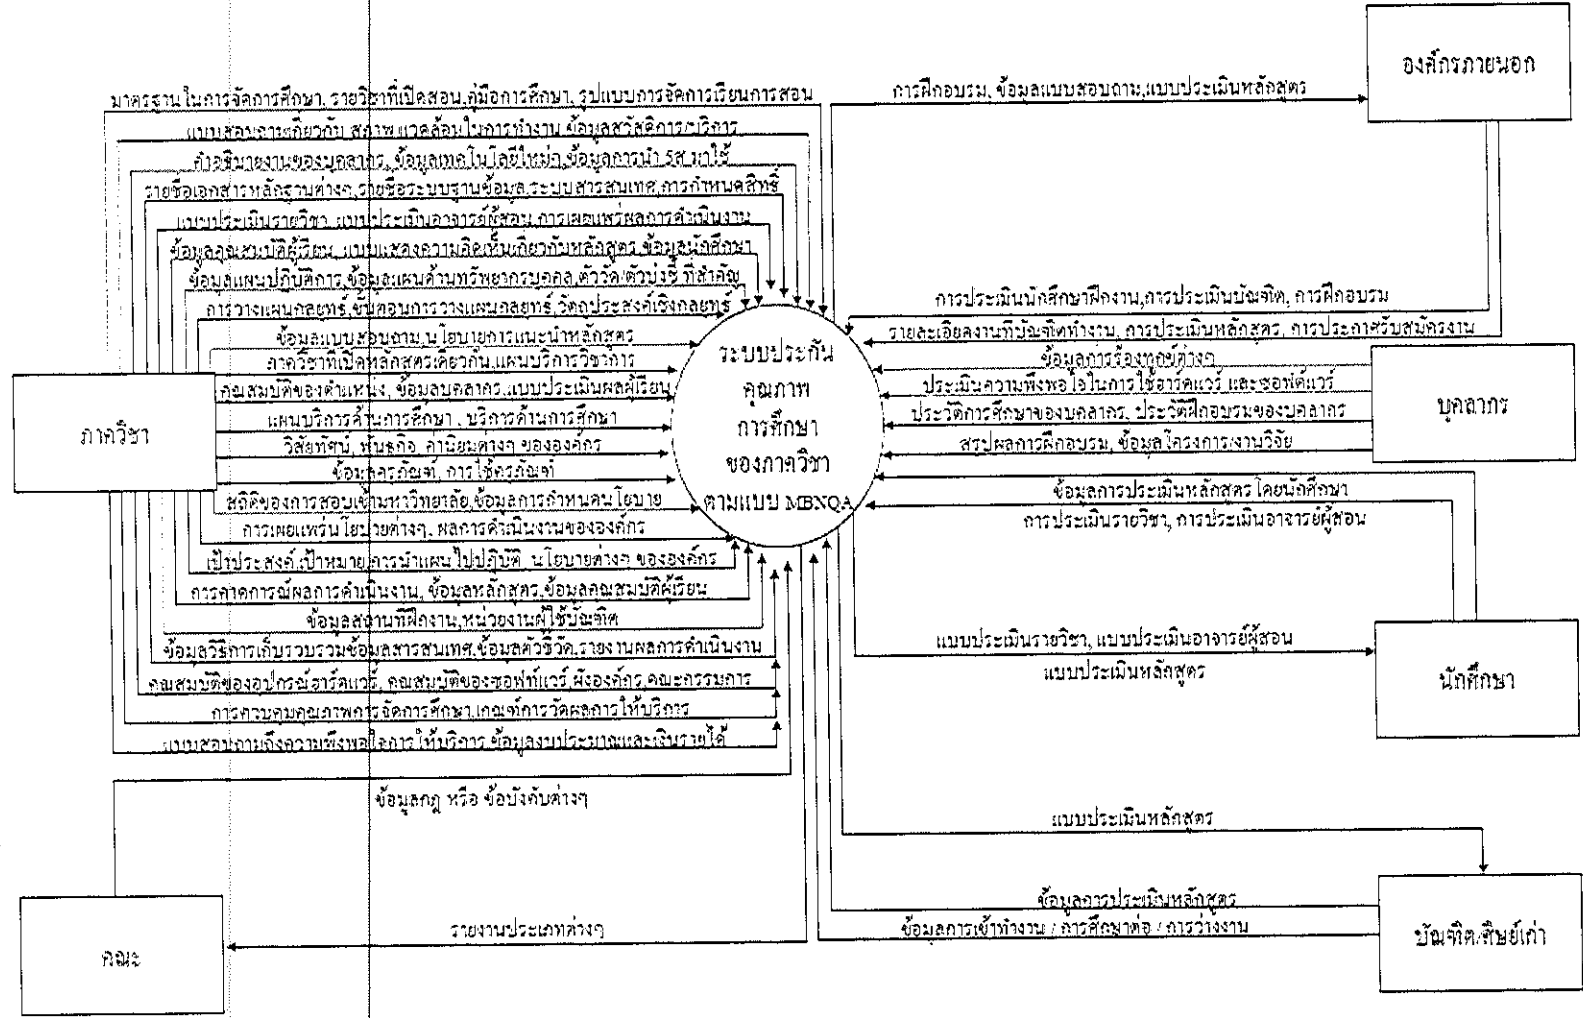 องค์กรภายนอก
มาตรฐานในการจัดการศึกษา, รายวิชาที่เปิดสอน,คู่มือการศึกษา, รูปแบบการจัดการเรียนการสอน
การฝึกอบรม, ข้อมูลแบบสอบถาม,แบบประเมินหลักสูตร
แบบสอบถามเกี่ยวกับ สภาพแวดล้อมในการทำงาน,ข้อมูลสวัสดิการ/บริการ
คำอธิบายงานของบุคลากร, ข้อมูลเทคโนโลยีใหม่ๆ,ข้อมูลการนำ 5ส มาใช้
รายชื่อเอกสารหลักฐานต่างๆ,รายชื่อระบบฐานข้อมูล,ระบบสารสนเทศ,การกำหนดสิทธิ์
แบบประเมินรายวิชา, แบบประเมินอาจารย์ผู้สอน,การเผยแพร่ผลการดำเนินงาน
ข้อมูลคุณสมบัติผู้เรียน, แบบแสดงความคิดเห็นเกี่ยวกับหลักสูตร,ข้อมูลนักศึกษา
ข้อมูลแผนปฏิบัติการ,ข้อมูลแผนด้านทรัพยากรบุคคล,ตัววัด/ตัวบ่งชี้ ที่สำคัญ
การวางแผนกลยุทธ์,ขั้นตอนการวางแผนกลยุทธ์,วัตถุประสงค์เชิงกลยุทธ์
ข้อมูลแบบสอบถาม,นโยบายการแนะนำหลักสูตร
ภาควิชาที่เปิดหลักสูตรเดียวกัน,แผนบริการวิชาการ
คุณสมบัติของตำแหน่ง, ข้อมูลบุคลากร,แบบประเมินผลผู้เรียน
แผนบริการด้านการศึกษา , บริการด้านการศึกษา
วิสัยทัศน์, พันธกิจ, ค่านิยมต่างๆ ขององค์กร
ข้อมูลครุภัณฑ์, การใช้ครุภัณฑ์
สถิติของการสอบเข้ามหาวิทยาลัย,ข้อมูลการกำหนดนโยบาย
การเผยแพร่นโยบายต่างๆ, ผลการดำเนินงานขององค์กร
เป้าประสงค์,เป้าหมาย,การนำแผนไปปฏิบัติ, นโยบายต่างๆ ขององค์กร
การคาดการณ์ผลการดำเนินงาน, ข้อมูลหลักสูตร,ข้อมูลคุณสมบัติผู้เรียน
ข้อมูลสถานที่ฝึกงาน,หน่วยงานผู้ใช้บัณฑิต
ข้อมูลวิธีการเก็บรวบรวมข้อมูลสารสนเทศ,ข้อมูลตัวชี้วัด,รายงานผลการดำเนินงาน
คุณสมบัติของอุปกรณ์ฮาร์ดแวร์, คุณสมบัติของซอฟท์แวร์,ผังองค์กร,คณะกรรมการ
การควบคุมคุณภาพการจัดการศึกษา,เกณฑ์การวัดผลการให้บริการ
แบบสอบถามถึงความพึงพอใจการให้บริการ,ข้อมูลงบประมาณและเงินรายได้
ภาควิชา
ระบบประกัน
คุณภาพ
การศึกษา
ของภาควิชา
ตามแบบ MBNQA
การประเมินนักศึกษาฝึกงาน,การประเมินบัณฑิต, การฝึกอบรม
รายละเอียดงานที่บัณฑิตทำงาน, การประเมินหลักสูตร, การประกาศรับสมัครงาน
ข้อมูลการร้องทุกข์ต่างๆ
ประเมินความพึงพอใจในการใช้ฮาร์ดแวร์ และซอฟต์แวร์
ประวัติการศึกษาของบุคลากร, ประวัติฝึกอบรมของบุคลากร
สรุปผลการฝึกอบรม, ข้อมูลโครงการ/งานวิจัย
บุคลากร
ข้อมูลการประเมินหลักสูตรโดยนักศึกษา
การประเมินรายวิชา, การประเมินอาจารย์ผู้สอน
แบบประเมินรายวิชา, แบบประเมินอาจารย์ผู้สอน
แบบประเมินหลักสูตร
นักศึกษา
ข้อมูลกฎ หรือ ข้อบังคับต่างๆ
แบบประเมินหลักสูตร
ข้อมูลการประเมินหลักสูตร
ข้อมูลการเข้าทำงาน / การศึกษาต่อ / การว่างงาน
รายงานประเภทต่างๆ
คณะ
บัณฑิต/ศิษย์เก่า